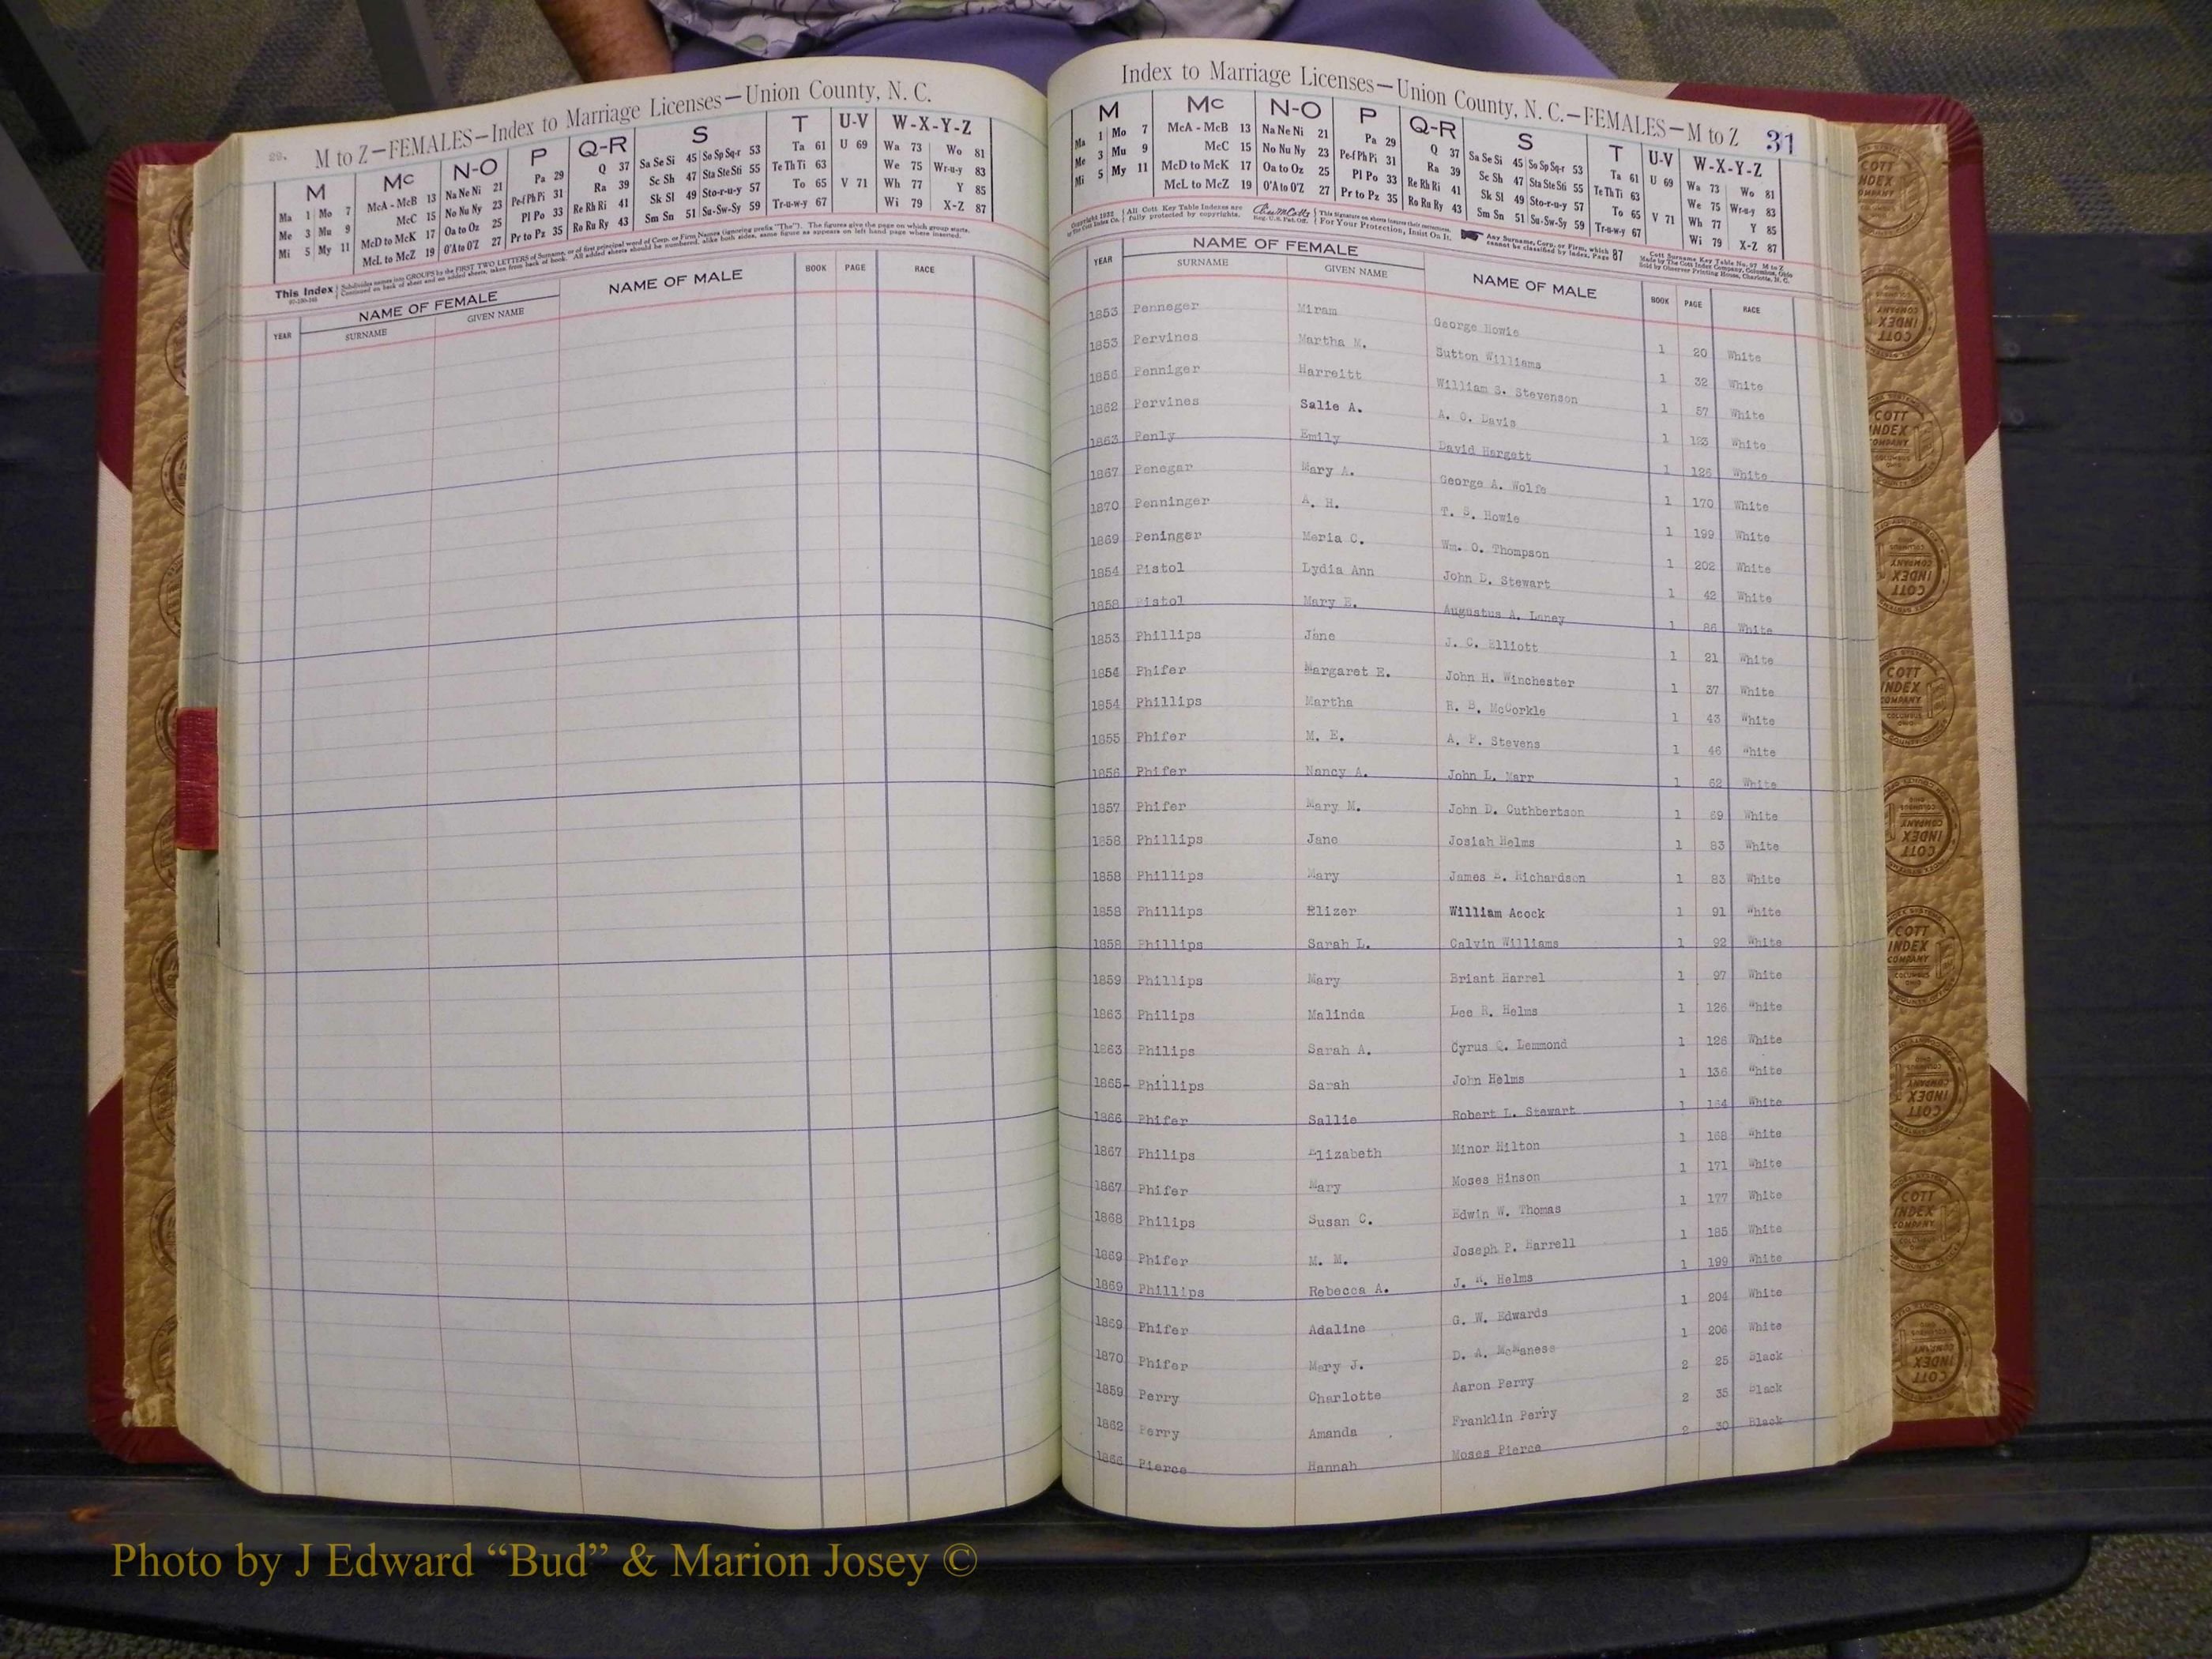 Index to Marriage Licenses—Union County, N. C.
29. M to Z—FEMALES—Index to Marriage Licenses—Union County, N. C.
M Mc N-O P Q-R S T U-V W-X-Y-Z
Ma 1 Mo 7 McA - McB 13 Na Ne Ni 21 Pa 29 Q 37 Sa Se Si 45 So Sp Sq-r 53 Ta 61 U 69 Wa 73 Wo 81
Me 3 Mu 9 McC 15 No Nu Ny 23 Pe-f Ph Pi 31 Ra 39 Sc Sh 47 Sta Ste Sti 55 Te Th Ti 63 We 75 Wr-u-y 83
Mi 5 My 11 McD to McK 17 Oa to Oz 25 Pl Po 33 Re Rh Ri 41 Sk Sl 49 Sto-r-u-y 57 To 65 V 71 Wh 77 Y 85
McL to McZ 19 O'A to O'Z 27 Pr to Pz 35 Ro Ru Ry 43 Sm Sn 51 Su-Sw-Sy 59 Tr-u-w-y 67 Wi 79 X-Z 87
This Index
YEAR NAME OF FEMALE NAME OF MALE BOOK PAGE RACE
SURNAME GIVEN NAME
Index to Marriage Licenses—Union County, N. C.—FEMALES—M to Z 31
M Mc N-O P Q-R S T U-V W-X-Y-Z
Ma 1 Mo 7 McA - McB 13 Na Ne Ni 21 Pa 29 Q 37 Sa Se Si 45 So Sp Sq-r 53 Ta 61 U 69 Wa 73 Wo 81
Me 3 Mu 9 McC 15 No Nu Ny 23 Pe-f Ph Pi 31 Ra 39 Sc Sh 47 Sta Ste Sti 55 Te Th Ti 63 We 75 Wr-u-y 83
Mi 5 My 11 McD to McK 17 Oa to Oz 25 Pl Po 33 Re Rh Ri 41 Sk Sl 49 Sto-r-u-y 57 To 65 V 71 Wh 77 Y 85
McL to McZ 19 O'A to O'Z 27 Pr to Pz 35 Ro Ru Ry 43 Sm Sn 51 Su-Sw-Sy 59 Tr-u-w-y 67 Wi 79 X-Z 87
YEAR NAME OF FEMALE NAME OF MALE BOOK PAGE RACE
SURNAME GIVEN NAME
1853 Penneger Miram George Howie 1 20 White
1853 Pervines Martha M. Sutton Williams 1 32 White
1856 Penniger Harreitt William S. Stevenson 1 57 White
1862 Pervines Salie A. A. O. Davis 1 123 White
1863 Penly Emily David Hargett 1 125 White
1867 Penegar Mary A. George A. Wolfe 1 170 White
1870 Penninger A. H. T. S. Howie 1 199 White
1869 Peninger Meria C. Wm. O. Thompson 1 202 White
1854 Pistol Lydia Ann John D. Stewart 1 42 White
1858 Pistol Mary E. Augustus A. Laney 1 86 White
1853 Phillips Jane J. C. Elliott 1 21 White
1854 Phifer Margaret E. John H. Winchester 1 37 White
1854 Phillips Martha R. B. McCorkle 1 43 White
1855 Phifer M. E. A. F. Stevens 1 46 White
1856 Phifer Nancy A. John L. Marr 1 62 White
1857 Phifer Mary M. John D. Cuthbertson 1 69 White
1858 Phillips Jane Josiah Helms 1 83 White
1858 Phillips Mary James E. Richardson 1 83 White
1858 Phillips Elizer William Acock 1 91 White
1858 Phillips Sarah L. Calvin Williams 1 92 White
1859 Phillips Mary Briant Harrel 1 97 White
1863 Philips Malinda Lee R. Helms 1 126 White
1863 Philips Sarah A. Cyrus Q. Lemmond 1 126 White
1865 Phillips Sarah John Helms 1 136 White
1866 Phifer Sallie Robert L. Stewart 1 164 White
1867 Philips Elizabeth Minor Hilton 1 168 White
1867 Phifer Mary Moses Hinson 1 171 White
1868 Philips Susan C. Edwin W. Thomas 1 177 White
1869 Phifer M. M. Joseph P. Harrell 1 185 White
1869 Phillips Rebecca A. J. K. Helms 1 199 White
1869 Phifer Adaline G. W. Edwards 1 204 White
1870 Phifer Mary J. D. A. McManess 1 206 White
1859 Perry Charlotte Aaron Perry 2 25 Black
1862 Perry Amanda Franklin Perry 2 35 Black
1866 Pierce Hannah Moses Pierce 2 30 Black
Photo by J Edward “Bud” & Marion Josey ©